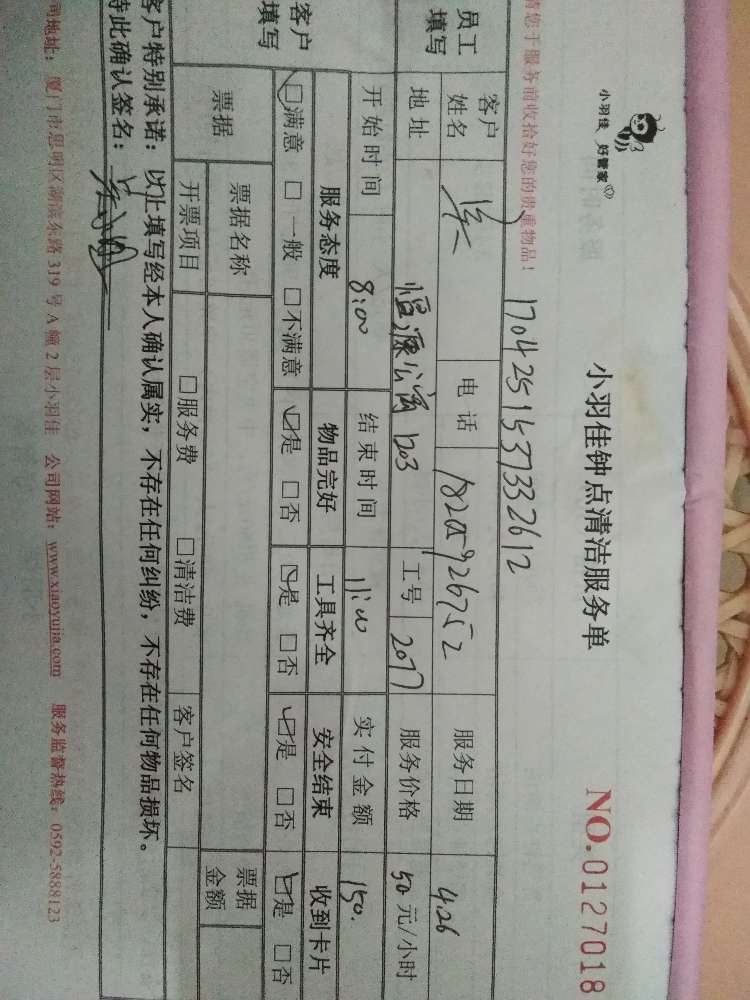 小羽佳 好管家
小羽佳钟点清洁服务单
NO.0127018
请您于服务前收拾好您的贵重物品！
1704251537332612
员工填写
客户姓名 吴 电话 18205926752 服务日期 4.26
地址 恒源公寓 1203 工号 2077 服务价格 50 元/小时
开始时间 8:00 结束时间 11:00 实付金额 150.
客户填写
服务态度 物品完好 工具齐全 安全结束 收到卡片
☑满意 □一般 □不满意 ☑是 □否 ☑是 □否 ☑是 □否 ☑是 □否
票据 票据名称 票据金额
开票项目 □服务费 □清洁费 客户签名
客户特别承诺：以上填写经本人确认属实，不存在任何纠纷，不存在任何物品损坏。
特此确认签名：
司地址：厦门市思明区湖滨东路 319 号 A 幢 2 层小羽佳 公司网站：www.xiaoyujia.com 服务监督热线：0592-5888123